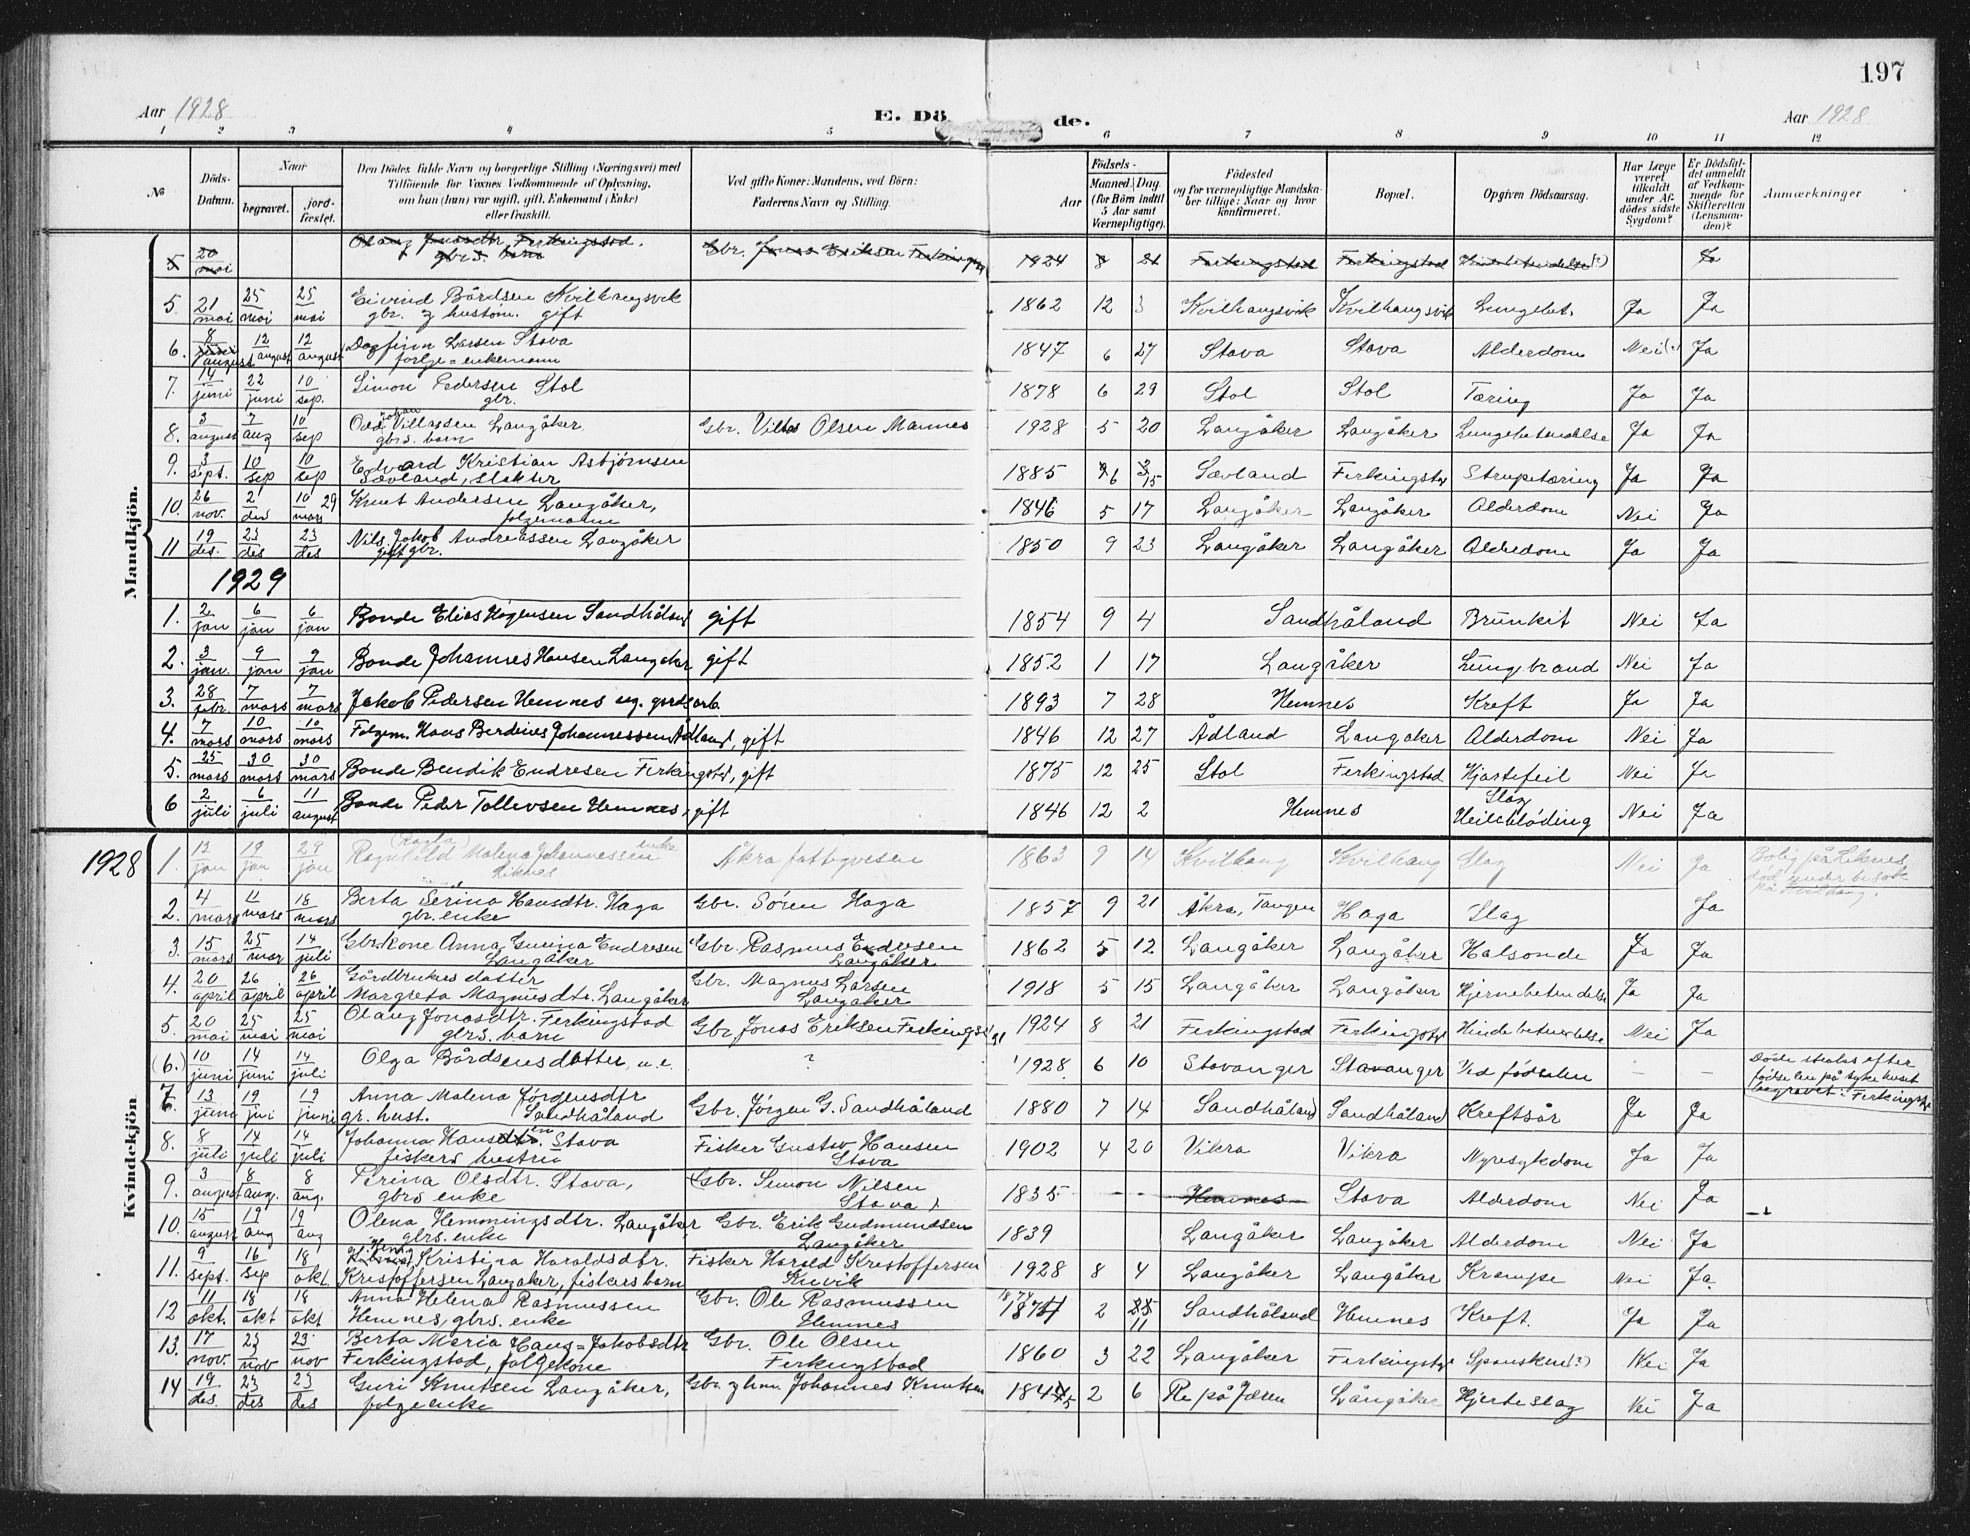 197
Aar 1928 E. Dö de. Aar 1928
1 2 3 4 5 6 7 8 9 10 11 12
No
Döds-Datum.
Naar
begravet.
jord-fæstet.
Den Dödes fulde Navn og borgerlige Stilling (Næringsvei) med
Tilföiende for Voxnes Vedkommende af Oplysning,
om han (hun) var ugift, gift, Enkemand (Enke)
eller fraskilt.
Ved gifte Koner: Mandens, ved Börn:
Faderens Navn og Stilling.
Födsels-
Aar
Maaned. Dag
(for Börn indtil
5 Aar samt
Værnepligtige).
Födested
og for værnepligtige Mandska-
ber tillige: Naar og hvor
konfirmeret.
Bopæl.
Opgiven Dödsaarsag.
Har Læge
været
tilkaldt
under Af-
dödes sidste
Sygdom?
Er Dödsfal-
det anmeldt
af Vedkom-
mende for
Skifteretten
(Lensman-
den)?
Anmærkninger
Mandkjön.
5 20 mai Olang Jonasdtr. Ferkingstad. gbrs. barn Gbr. Jonas Eriksen Ferkingst 1924 8 21 Ferkingstad Ferkingstad Hindebetændelse(?) Ja
5. 21 mai 25 mai 25 mai Eivind Bårdsen Kvilhaugsvik gbr. g hustom. gift 1862 12 3 Kvilhaugsvik Kvilhaugsvik Lungebet. Ja Ja
6. 8 juni august 12 august 12 august Dagfinn Larsen Stava folge=enkemann 1847 6 27 Stava Stava Alderdom Nei(?) Ja
7. 14 juni 22 juni 10 sep. Simon Pedersen Stol gbr. 1878 6 29 Stol Stol Tæring Ja Ja
8. 3 august 7 aug 10 sep Odd Johan Villassen Langåker gbrs. barn Gbr. Villas Olsen Mannes 1928 5 20 Langåker Langåker Lungebetændelse Ja Ja
9. 3 sept. 10 sep 10 sep Edvard Kristian Asbjørnsen Sævland, slakter 1885 6 15 Sævland Ferkingstad Strupetæring Ja Ja
10. 26 nov. 2 des 10 mars 29 Knut Andersen Langåker, folgemann 1846 5 17 Langåker Langåker Alderdom Nei Ja
11 19 des. 23 des 23 des Nils Jakob Andreassen Langåker gift gbr. 1850 9 23 Langåker Langåker Alderdom Ja Ja
1929
1. 2 jan 6 jan 6 jan Bonde Elias Høgensen Sandhåland gift 1854 9 4 Sandhåland Brunkit Nei Ja
2. 3 jan. 9 jan 9 jan Bonde Johannes Hansen Langåker gift 1852 1 17 Langåker Lungebrand Nei Ja
3. 28 febr. 7 mars 7 mars Jakob Pedersen Hemnes ug. gardsarb. 1893 7 28 Hemnes Kreft Ja Ja
4. 7 mars 10 mars 10 mars Folgem. Hans Berdines Johannessen Ådland, gift 1846 12 27 Ådland Langåker Alderdom Nei Ja
5. 25 mars 30 mars 30 mars Bonde Bendik Endresen Ferkingstad, gift 1875 12 25 Stol Ferkingstad Hjertefeil Nei Ja
6 2 juli 6 juli 11 august Bonde Peder Tollevsen Hemnes, gift 1846 12 2 Hemnes Slag Heileblöding Nei Ja
Kvindekjön
1928 1. 12 jan 19 jan 29 jan Ragnhild (Ragla) Malena Johannessen enke Liknes Åkra fattigvesen 1863 9 14 Kvilhaug Kvilhaug Slag Nei Ja Bolig på Liknes, död under besök på Kvilhaug.
2. 4 mars 11 mars 18 mars Berta Serina Hansdtr. Haga gbr. enke Gbr. Sören Haga 1857 9 21 Åkra, Tangen Haga Slag Ja
3. 15 mars 25 mar 14 juli Gbr kone Anna Gurina Endresen Langåker Gbr. Rasmus Endresen Langåker 1862 5 12 Langåker Langåker Halsonde Ja Ja
4. 20 april 26 april 26 april Gårdbrukers datter Margreta Magnusdtr. Langåker Gbr. Magnus Larsen Langåker 1918 5 15 Langåker Langåker Hjernebetendelse Ja Ja
5. 20 mai 25 mai 25 mai Olaug Jonasdtr. Ferkingstad gbrs. barn Gbr. Jonas Eriksen Ferkingst 1924 8 21 Ferkingstad Ferkingstad Hindebetændelse Nei Ja
(6.) 10 juni 14 juni 14 juli Olga Bårdsensdatter, u.e. ? 1928 6 10 Stavanger Stavanger Ved födselen — — Döde straks efter födselen på sykehuset begravet i Ferkingst
7. 13 juni 19 juni 19 juni Anna Malena Jörgensdtr gr. hust. Sandhåland Gbr. Jörgen G. Sandhåland 1880 7 14 Sandhåland Sandhåland Kreftsår Ja Ja
8. 8 juli 14 juli 14 juli Johanna Hansen Stava fiskers hustru Fisker Gustav Hansen Stava 1902 4 20 Vikra Vikra Nyresykdom Ja Ja
9. 3 august 8 aug. 8 aug. Perina Olsdtr. Stava, gbrs enke (Gbr. Simon Nilsen Stava) 1835 - - Hemnes Stava Alderdom Nei Ja
10. 15 august 19 aug 19 aug Olena Hemmingsdtr. Langåker gbrs. enke Gbr. Erik Gudmundsen Langåker 1839 Langåker Langåker Alderdom Nei Ja
11. 9 sept. 16 sep 18 okt. Kristina Haraldsdtr. Kristoffersen Langåker, fiskers barn Fisker Harald Kristoffersen Kuvik 1928 8 4 Langåker Langåker Krampe Nei Ja.
12 11 okt. 18 okt 18 okt Anna Helena Rasmussen Hemnes, gbrs. enke Gbr. Ole Rasmussen Hemnes 1874 2 11 Sandhåland Hemnes Kreft. Ja Ja
13. 17 nov. 23 nov 23 nov Berta Maria Hans=Jakobsdtr Ferkingstad, folgekone Gbr. Ole Olsen Ferkingstad 1860 3 22 Langåker Ferkingstad Spansken(?) Nei Ja
14 19 des. 23 des 23 des Guri Knutsen Langåker, folgeenke Gbr. g hm. Johannes Knutsen 1845 2 6 Re på Jæren Långåker Hjerteslag Nei Ja